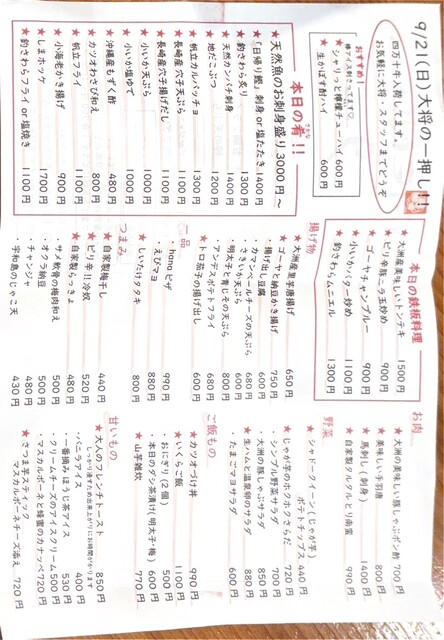 9/21(日)大将の一押し!!
四万十牛入荷してます。
お気軽に大将、スタッフまでどうぞ
おすすめ!
棒アイス刺さってます♡
・シャリッと檸檬チューハイ 600円
・生かぼす酎ハイ 600円
本日の肴!!
★天然魚のお刺身盛り 3000円~
・「日帰り鰹」刺身 or 塩たたき 1400円
・釣さわら炙り 1300円
・天然カンパチ刺身 1400円
・地だこぶつ 1200円
・帆立カルパッチョ 1300円
・長崎産穴子天ぷら 1100円
・長崎産穴子揚げだし 1100円
・小いか天ぷら 1000円
・小いか塩ゆで 1000円
・沖縄産もずく酢 480円
・カツオわさび和え 800円
・帆立フライ 1100円
・小海老かき揚げ 900円
・しまホッケ 1700円
・釣さわらフライ or 塩焼き 1100円
本日の鉄板料理
・大洲産美味しいトンテキ 1500円
・ピリ豚ニラ玉炒め 900円
・ゴーヤチャンプルー 900円
・小いかバター炒め 1100円
・釣さわらムニエル 1300円
揚げ物
・大洲産里芋唐揚げ 650円
・ゴーヤと納豆かき揚げ 750円
・揚げ出し豆腐 600円
・カマンベールチーズの天ぷら 680円
・さきいかの天ぷら 600円
・明太子と青じその天ぷら 800円
・アンデスポテトフライ 600円
・トロ茄子の揚げ出し 600円
一品
・hanaピザ 990円
・えびマヨ 880円
・しいたけタタキ 800円
つまみ
・自家製梅干し 440円
・ピリ辛!!冷奴 520円
・自家製らっきょ 480円
・サメ軟骨の梅肉和え 500円
・オクラ納豆 500円
・チャンジャ 480円
・宇和島のじゃこ天 430円
お肉
・大洲の美味しい豚しゃぶポン酢 700円
・美味しい手羽唐 800円
・馬刺し(刺身) 1400円
・自家製タルタルとり南蛮 990円
野菜
・シャドークイーン(じゃが芋)
ポテトチップス 440円
・じゃが芋のホクホクさらだ 720円
・シンプル野菜サラダ 700円
・大洲の豚しゃぶサラダ 850円
・生ハムと温泉卵のサラダ 880円
・たまごマヨサラダ 600円
ご飯もの
・カツオづけ丼 990円
・いくらご飯 1100円
・おにぎり(2個) 500円
・本日のダシ茶漬け(明太子・梅) 600円
・山芋雑炊 770円
甘いもの
・大人のフレンチトースト 850円
しっかり漬すため出来上がりにお時間がかかります
・バニラアイス 400円
・一番摘みほうじ茶アイス 530円
・クリームチーズのアイスクリーム 500円
・マスカルポーネと蜂蜜のカナッペ 720円
・さつま芋スティック
マスカルポーネチーズ添え 720円